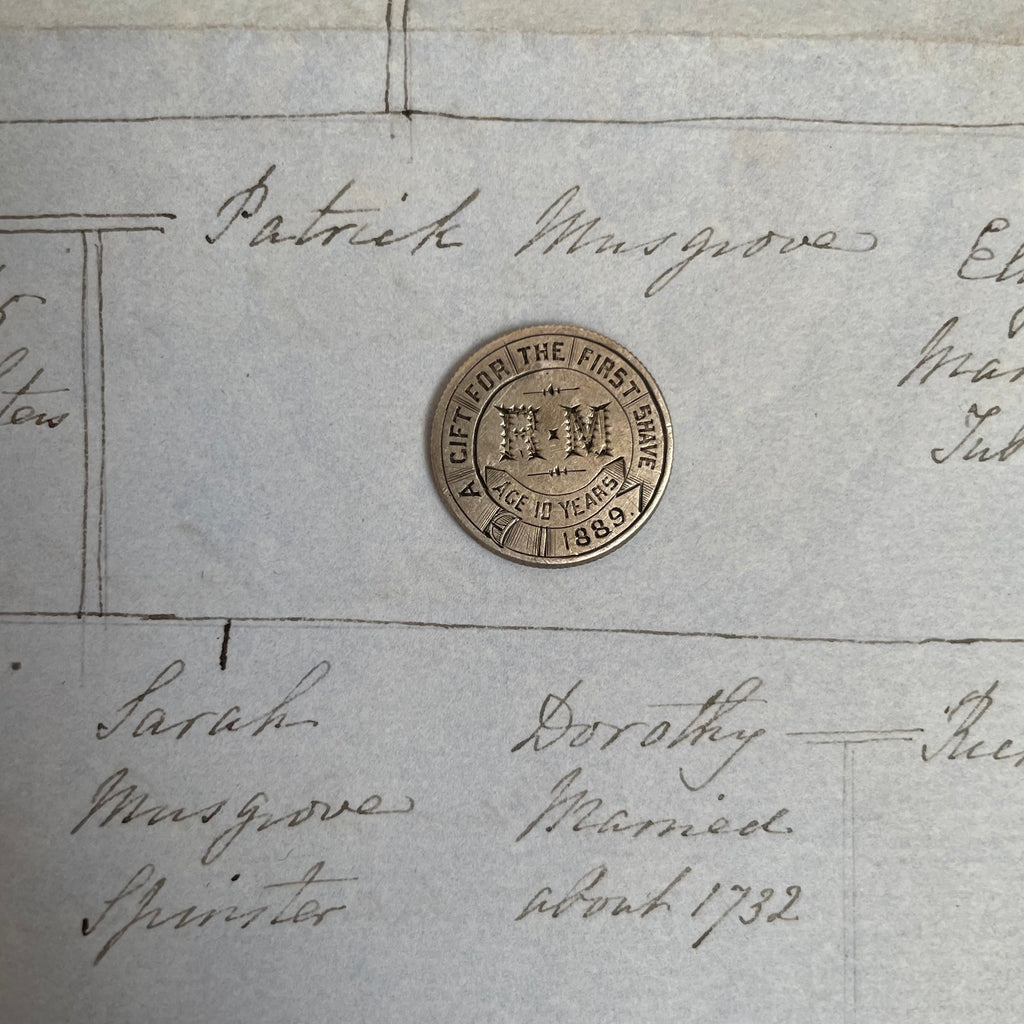 Patrick Musgrove
A GIFT FOR THE FIRST SHAVE
R · M
AGE 10 YEARS
1889.
Sarah
Musgrove
Spinster
Dorothy
Married
about 1732